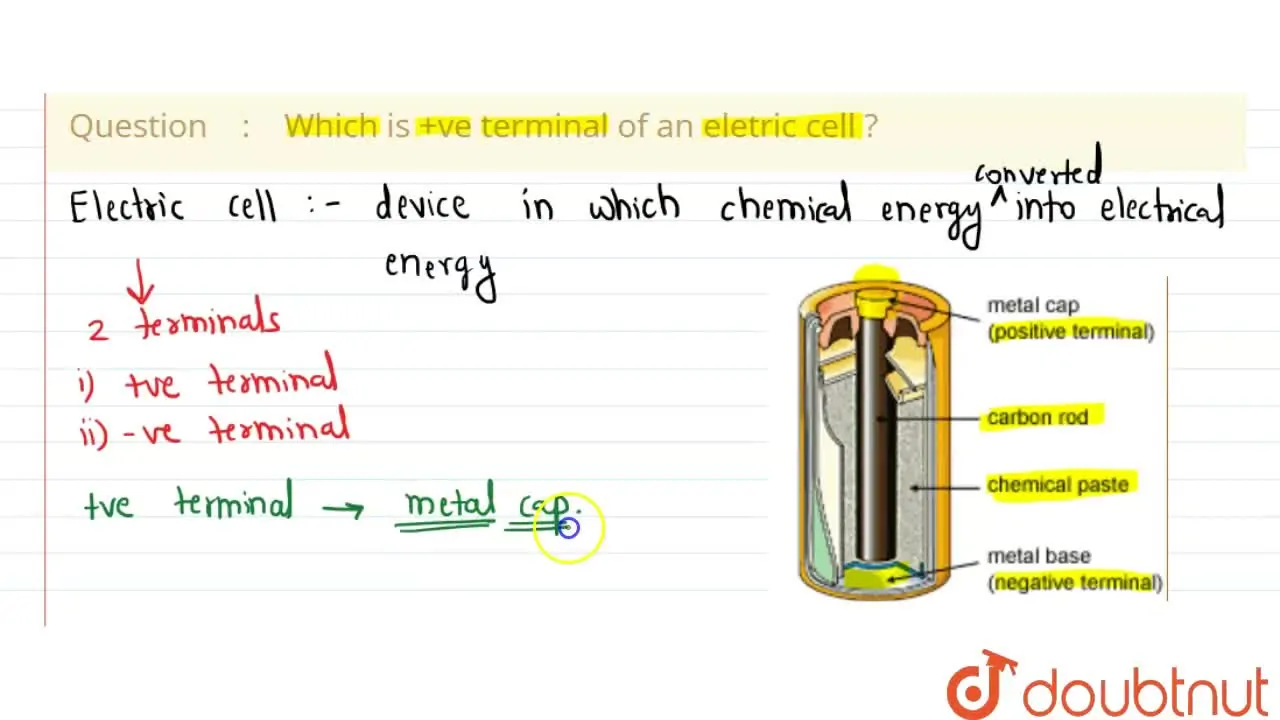 Question : Which is +ve terminal of an eletric cell ?
converted
Electric cell :- device in which chemical energy ^ into electrical
energy
2 terminals
i) +ve terminal
ii) -ve terminal
+ve terminal → metal cap.
metal cap
(positive terminal)
carbon rod
chemical paste
metal base
(negative terminal)
doubtnut